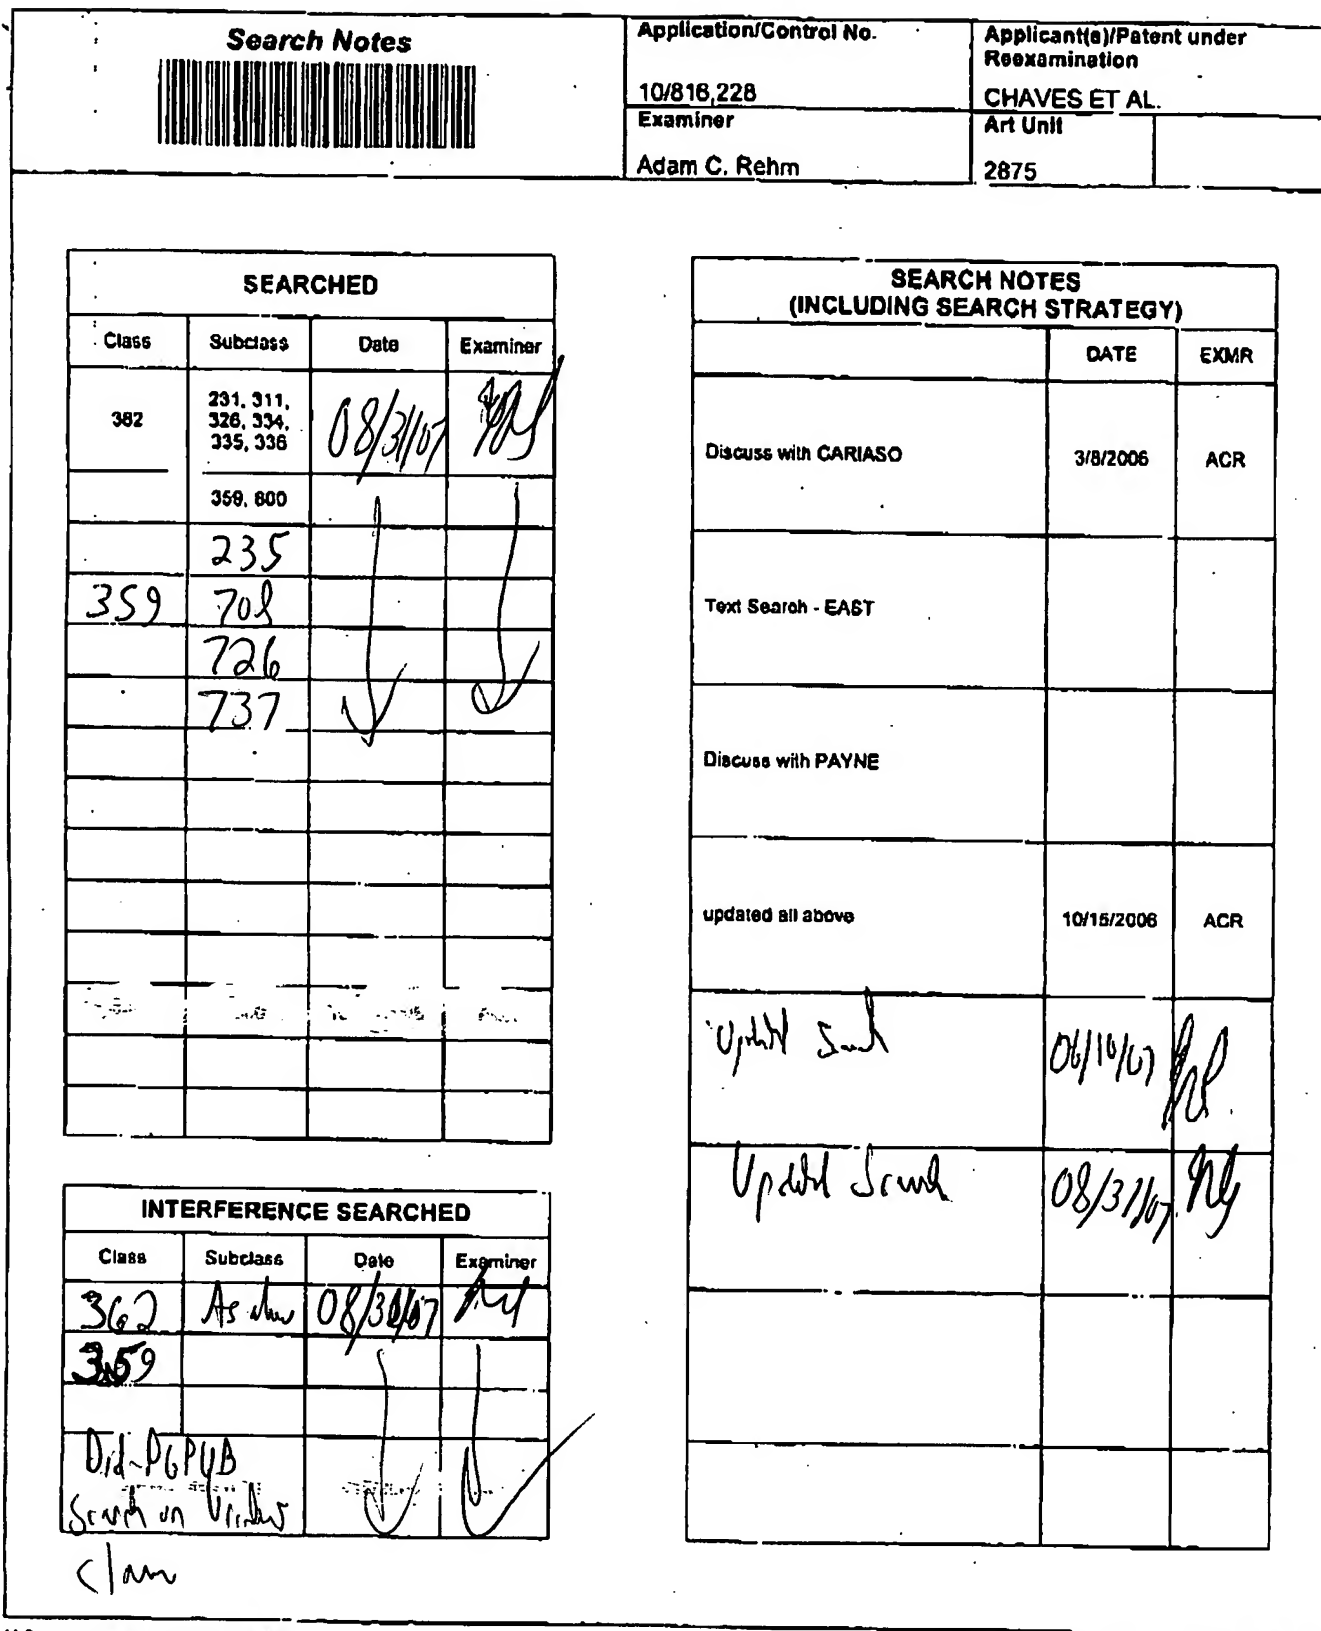 Search Notes
Application/Control No.
10/816,228
Applicant(s)/Patent under
Reexamination
CHAVES ET AL.
Examiner
Adam C. Rehm
Art Unit
2875
SEARCHED
Class Subclass Date Examiner
362 231, 311,
326, 334,
335, 336
08/31/07
359, 800
235
359 708
726
737
INTERFERENCE SEARCHED
Class Subclass Date Examiner
362 As above 08/31/07
359
Did PGPUB
Search on
Claim
SEARCH NOTES
(INCLUDING SEARCH STRATEGY)
DATE EXMR
Discuss with CARIASO 3/8/2006 ACR
Text Search - EAST
Discuss with PAYNE
updated all above 10/15/2006 ACR
Updated Search 06/10/07
Updated Search 08/31/07